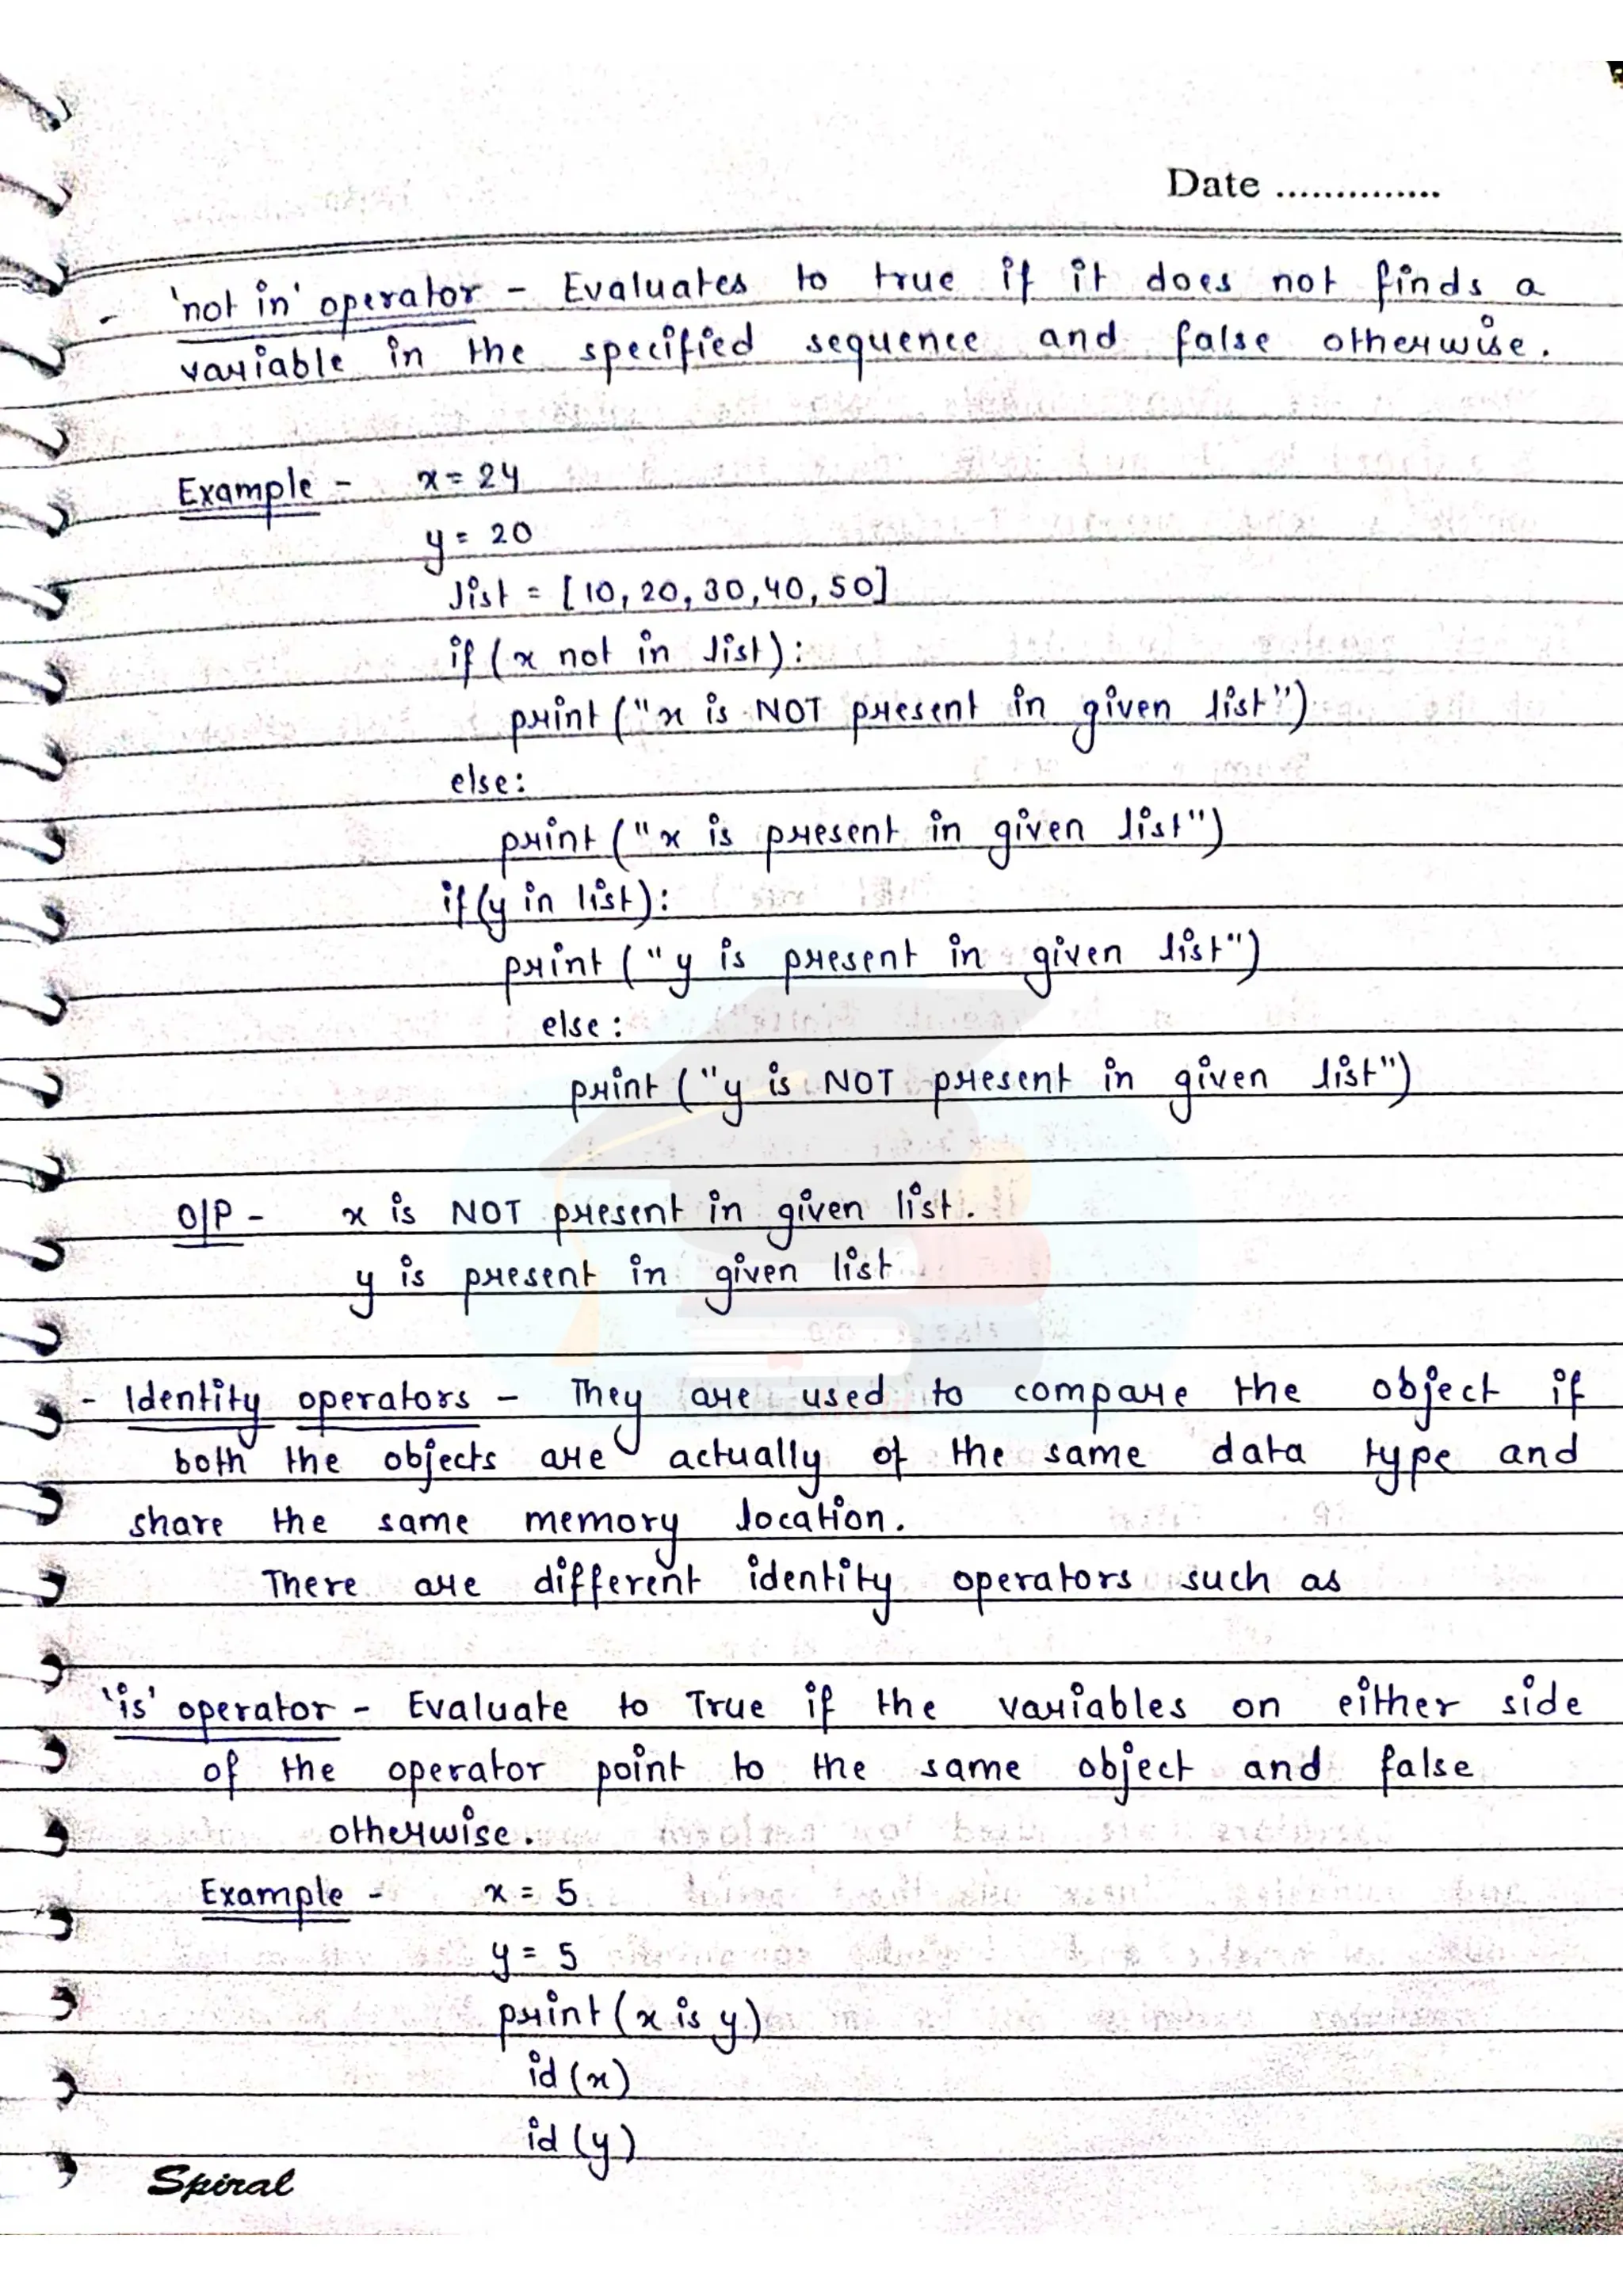 Date ...............
- 'not in' operator - Evaluates to true if it does not finds a
variable in the specified sequence and false otherwise.
Example - x = 24
y = 20
list = [10, 20, 30, 40, 50]
if (x not in list):
print ("x is NOT present in given list")
else:
print ("x is present in given list")
if (y in list):
print ("y is present in given list")
else:
print ("y is NOT present in given list")
O/P - x is NOT present in given list.
y is present in given list
- Identity operators - They are used to compare the object if
both the objects are actually of the same data type and
share the same memory location.
There are different identity operators such as
'is' operator - Evaluate to True if the variables on either side
of the operator point to the same object and false
otherwise.
Example - x = 5
y = 5
print (x is y)
id (x)
id (y)
Spiral